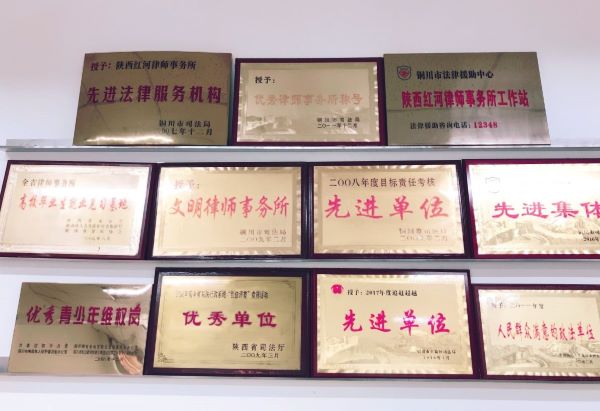 授予：陕西红河律师事务所
先进法律服务机构
铜川市司法局
二〇〇七年十二月
授予：
优秀律师事务所称号
铜川市司法局
二〇一一年十二月
铜川市法律援助中心
陕西红河律师事务所工作站
法律援助咨询电话：12348
全省律师事务所
高校毕业生就业见习基地
授予：
文明律师事务所
铜川市司法局
二〇〇九年二月
二〇〇八年度目标责任考核
先进单位
铜川市司法局
二〇〇九年二月
先进集体
优秀青少年维权岗
优秀单位
陕西省司法厅
二〇〇九年三月
授予：2017年度追赶超越
先进单位
二〇一一年度
人民群众满意的政法单位